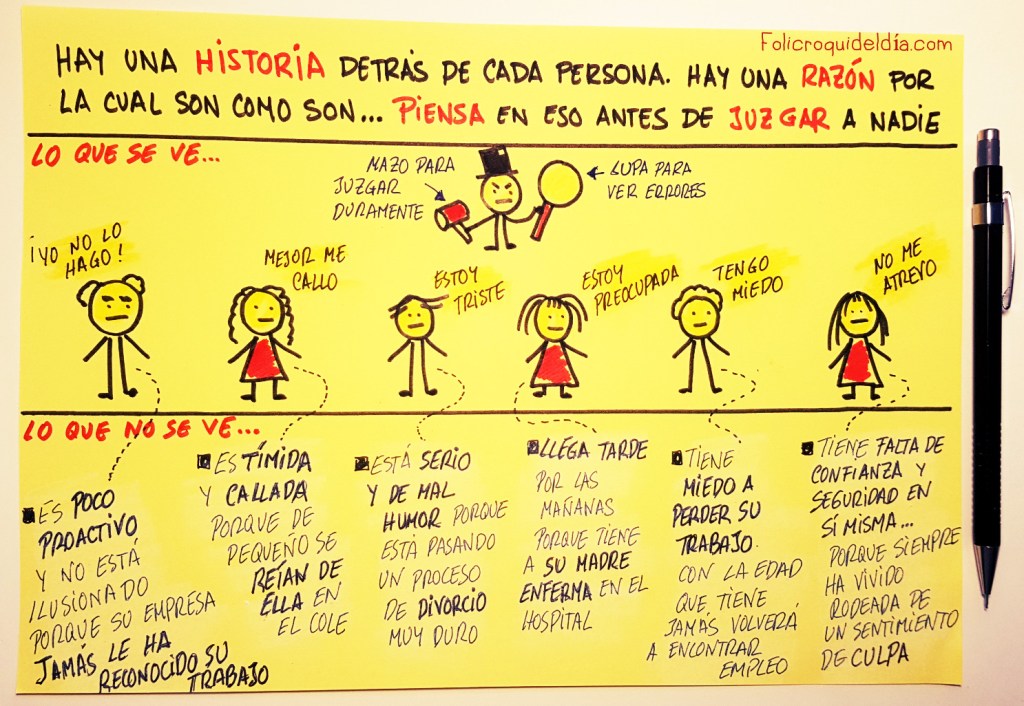 Folicroquideldía.com
HAY UNA HISTORIA DETRÁS DE CADA PERSONA. HAY UNA RAZÓN POR
LA CUAL SON COMO SON... PIENSA EN ESO ANTES DE JUZGAR A NADIE
LO QUE SE VE...
MAZO PARA
JUZGAR
DURAMENTE
LUPA PARA
VER ERRORES
¡YO NO LO
HAGO!
MEJOR ME
CALLO
ESTOY
TRISTE
ESTOY
PREOCUPADA
TENGO
MIEDO
NO ME
ATREVO
LO QUE NO SE VE...
ES POCO
PROACTIVO
Y NO ESTÁ
ILUSIONADO
PORQUE SU EMPRESA
JAMÁS LE HA
RECONOCIDO SU
TRABAJO
ES TÍMIDA
Y CALLADA
PORQUE DE
PEQUEÑO SE
REÍAN DE
ELLA EN
EL COLE
ESTÁ SERIO
Y DE MAL
HUMOR PORQUE
ESTÁ PASANDO
UN PROCESO
DE DIVORCIO
MUY DURO
LLEGA TARDE
POR LAS
MAÑANAS
PORQUE TIENE
A SU MADRE
ENFERMA EN EL
HOSPITAL
TIENE
MIEDO A
PERDER SU
TRABAJO.
CON LA EDAD
QUE TIENE
JAMÁS VOLVERÁ
A ENCONTRAR
EMPLEO
TIENE FALTA DE
CONFIANZA Y
SEGURIDAD EN
SÍ MISMA...
PORQUE SIEMPRE
HA VIVIDO
RODEADA DE
UN SENTIMIENTO
DE CULPA